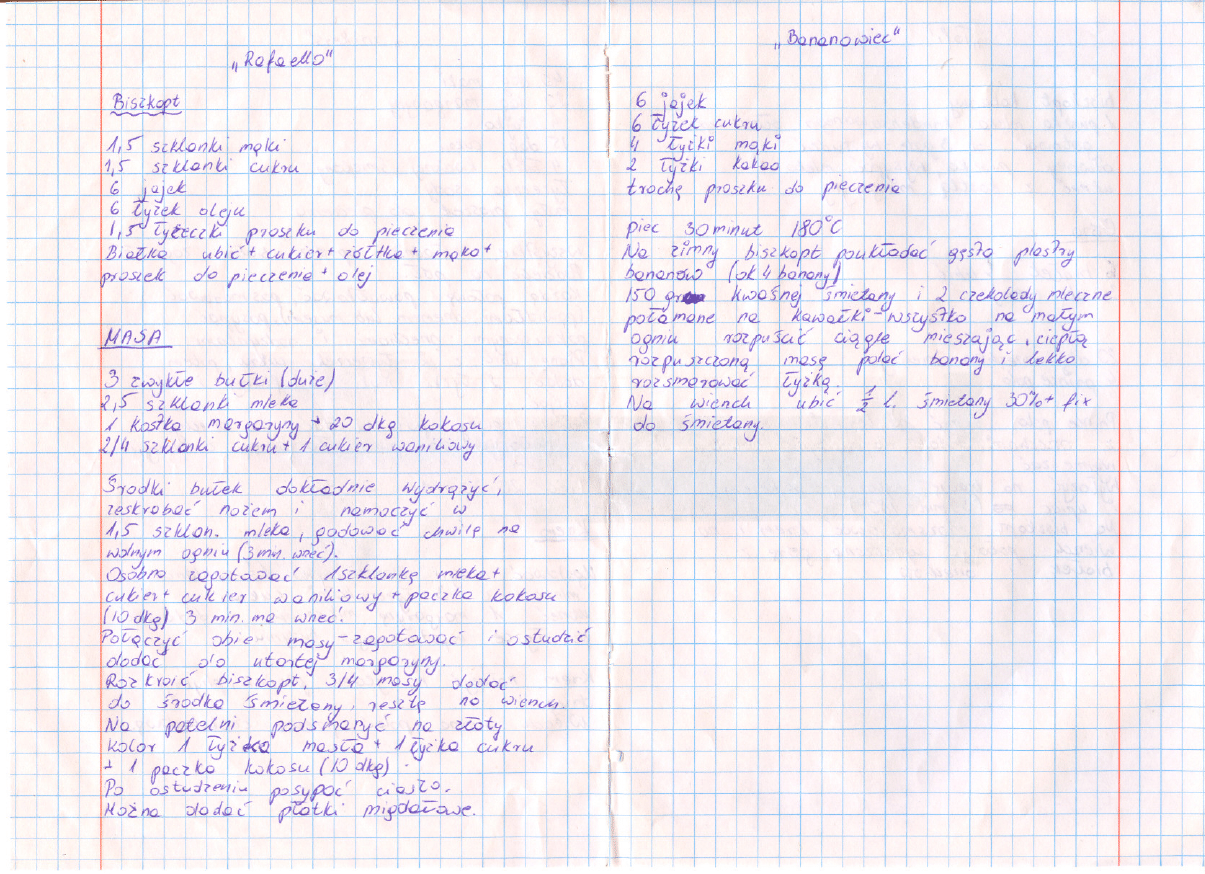 „Rafaello"
Biszkopt
1,5 szklanki mąki
1,5 szklanki cukru
6 jajek
6 łyżek oleju
1,5 łyżeczki proszku do pieczenia
Białka ubić + cukier + żółtka + mąka +
proszek do pieczenia + olej
MASA
3 zwykłe bułki (duże)
2,5 szklanki mleka
1 kostka margaryny + 20 dkg kokosu
2/4 szklanki cukru + 1 cukier waniliowy
Środki bułek dokładnie wydrążyć,
zeskrobać nożem i namoczyć w
1,5 szklan. mleka, gotować chwilę na
wolnym ogniu (3 min. wrzeć).
Osobno zagotować 1 szklankę mleka +
cukier + cukier waniliowy + paczka kokosu
(10 dkg) 3 min. ma wrzeć.
Połączyć obie masy - zagotować i ostudzić
dodać do utartej margaryny.
Rozkroić biszkopt, 3/4 masy dodać
do środka śmietany, resztę na wierzch.
Na patelni podsmażyć na złoty
kolor 1 łyżka masła + 1 łyżka cukru
+ 1 paczka kokosu (10 dkg).
Po ostudzeniu posypać ciasto.
Można dodać płatki migdałowe.
„Bananowiec"
6 jajek
6 łyżek cukru
4 łyżki mąki
2 łyżki kakao
trochę proszku do pieczenia
piec 30 minut 180°C
Na zimny biszkopt poukładać gęsto plastry
bananów (ok 4 banany)
150 gr kwaśnej śmietany i 2 czekolady mleczne
połamane na kawałki - wszystko na małym
ogniu rozpuścić ciągle mieszając, ciepłą
rozpuszczoną masą polać banany i lekko
rozsmarować łyżką.
Na wierzch ubić 1/2 l. śmietany 30% + fix
do śmietany.